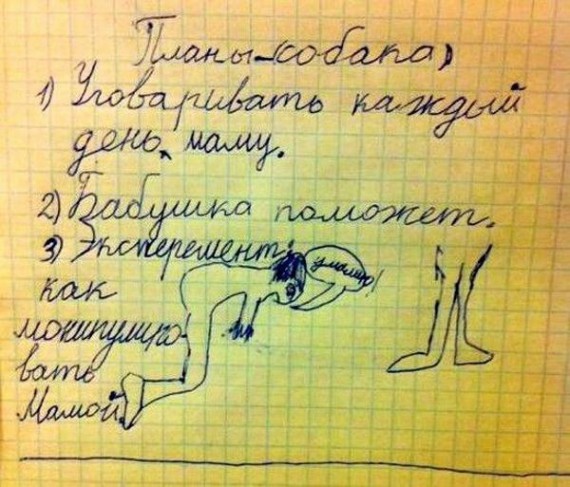 Планы (собака)
1) Уговаривать каждый
день маму.
2) Бабушка поможет.
3) Эксперемент:
как
монипулиро-
вать
Мамой.
умаляю!